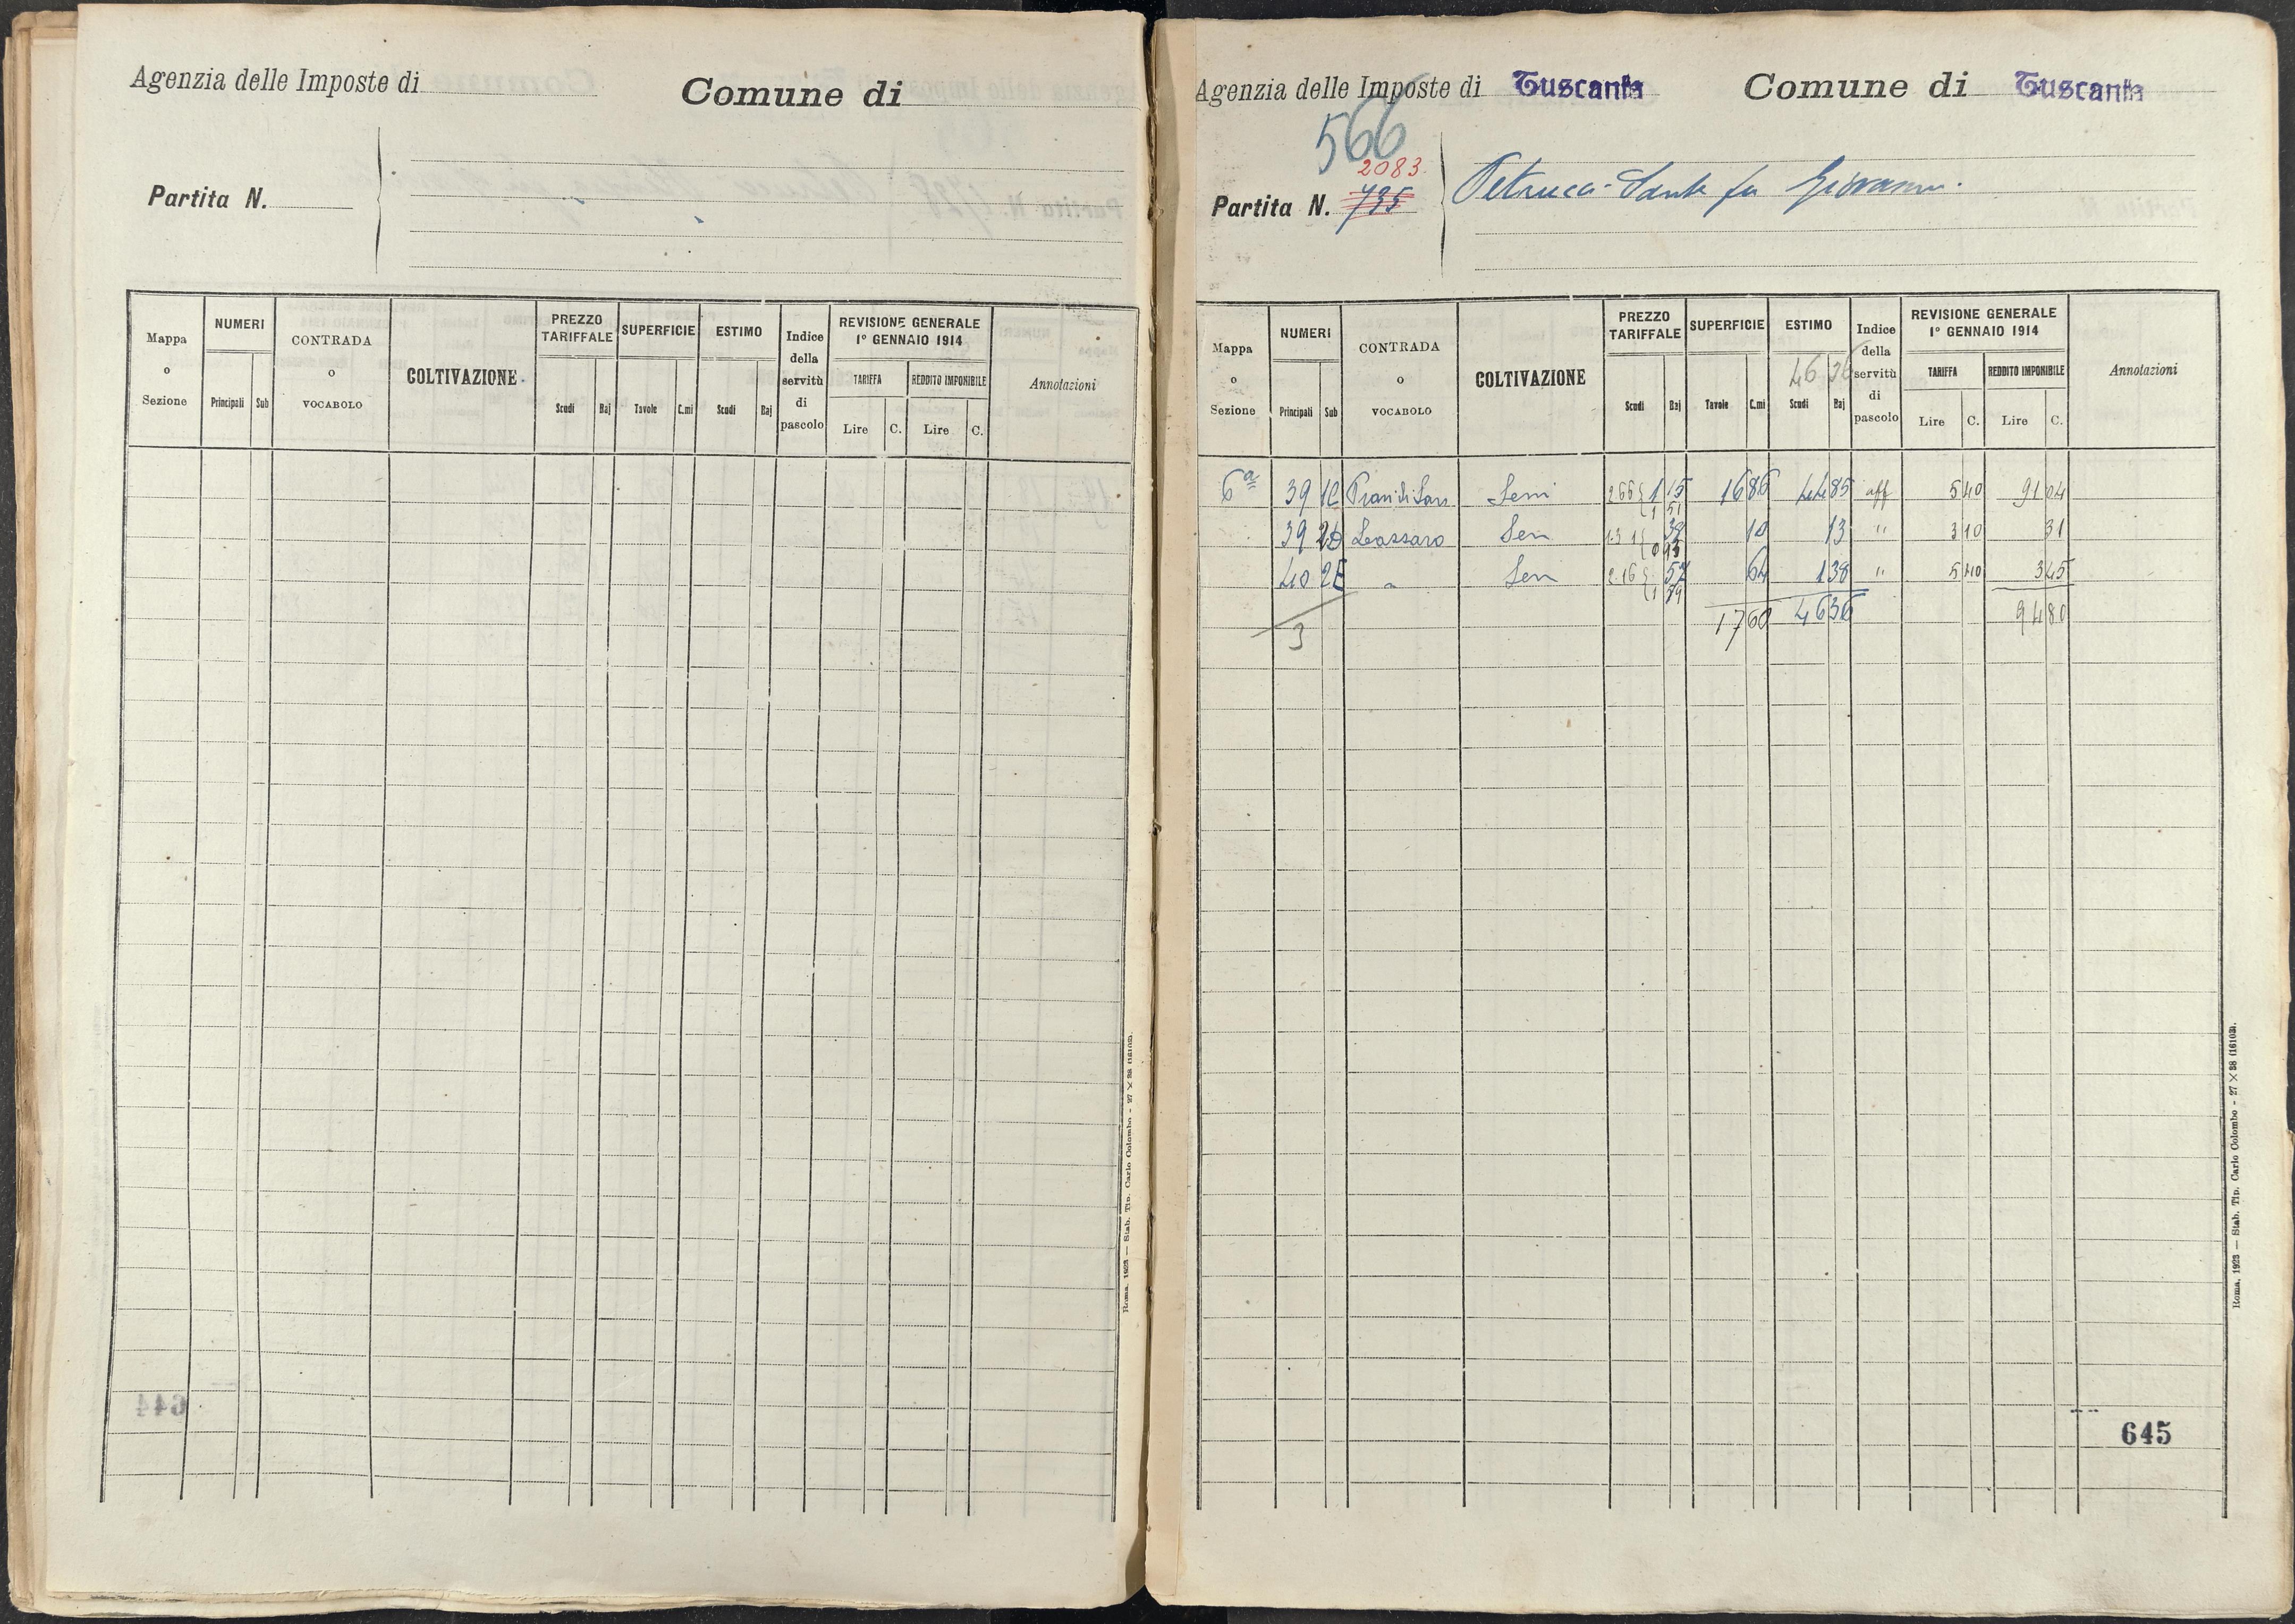 Agenzia delle Imposte di
Comune di
Partita N.
Mappa o Sezione
NUMERI
Principali
Sub
CONTRADA o VOCABOLO
COLTIVAZIONE
PREZZO TARIFFALE
Scudi
Baj
SUPERFICIE
Tavole
C.mi
ESTIMO
Scudi
Baj
Indice della servitù di pascolo
REVISIONE GENERALE
1° GENNAIO 1914
TARIFFA
REDDITO IMPONIBILE
Lire
C.
Lire
C.
Annotazioni
644
Roma, 1923 — Stab. Tip. Carlo Colombo - 27 × 38 (16103).
Agenzia delle Imposte di Tuscania Comune di Tuscania
566
2083.
Partita N. 735
Petrucci Sante fu Giovanni.
Mappa o Sezione
NUMERI
Principali
Sub
CONTRADA o VOCABOLO
COLTIVAZIONE
PREZZO TARIFFALE
Scudi
Baj
SUPERFICIE
Tavole
C.mi
ESTIMO
46 36
Scudi
Baj
Indice della servitù di pascolo
REVISIONE GENERALE
1° GENNAIO 1914
TARIFFA
REDDITO IMPONIBILE
Lire
C.
Lire
C.
Annotazioni
6ª 39 Pian di Semi 266 1 15 16 86 44 85 aff 5 40 91 04
1 51
39 Lassaro Sem 131 38 10 13 " 3 10 31
0 93
40 2E " Sem 216 57 64 1 38 " 5 40 3 45
1 59
3 17 60 46 36 94 80
645
Roma, 1923 — Stab. Tip. Carlo Colombo - 27 × 38 (16103).